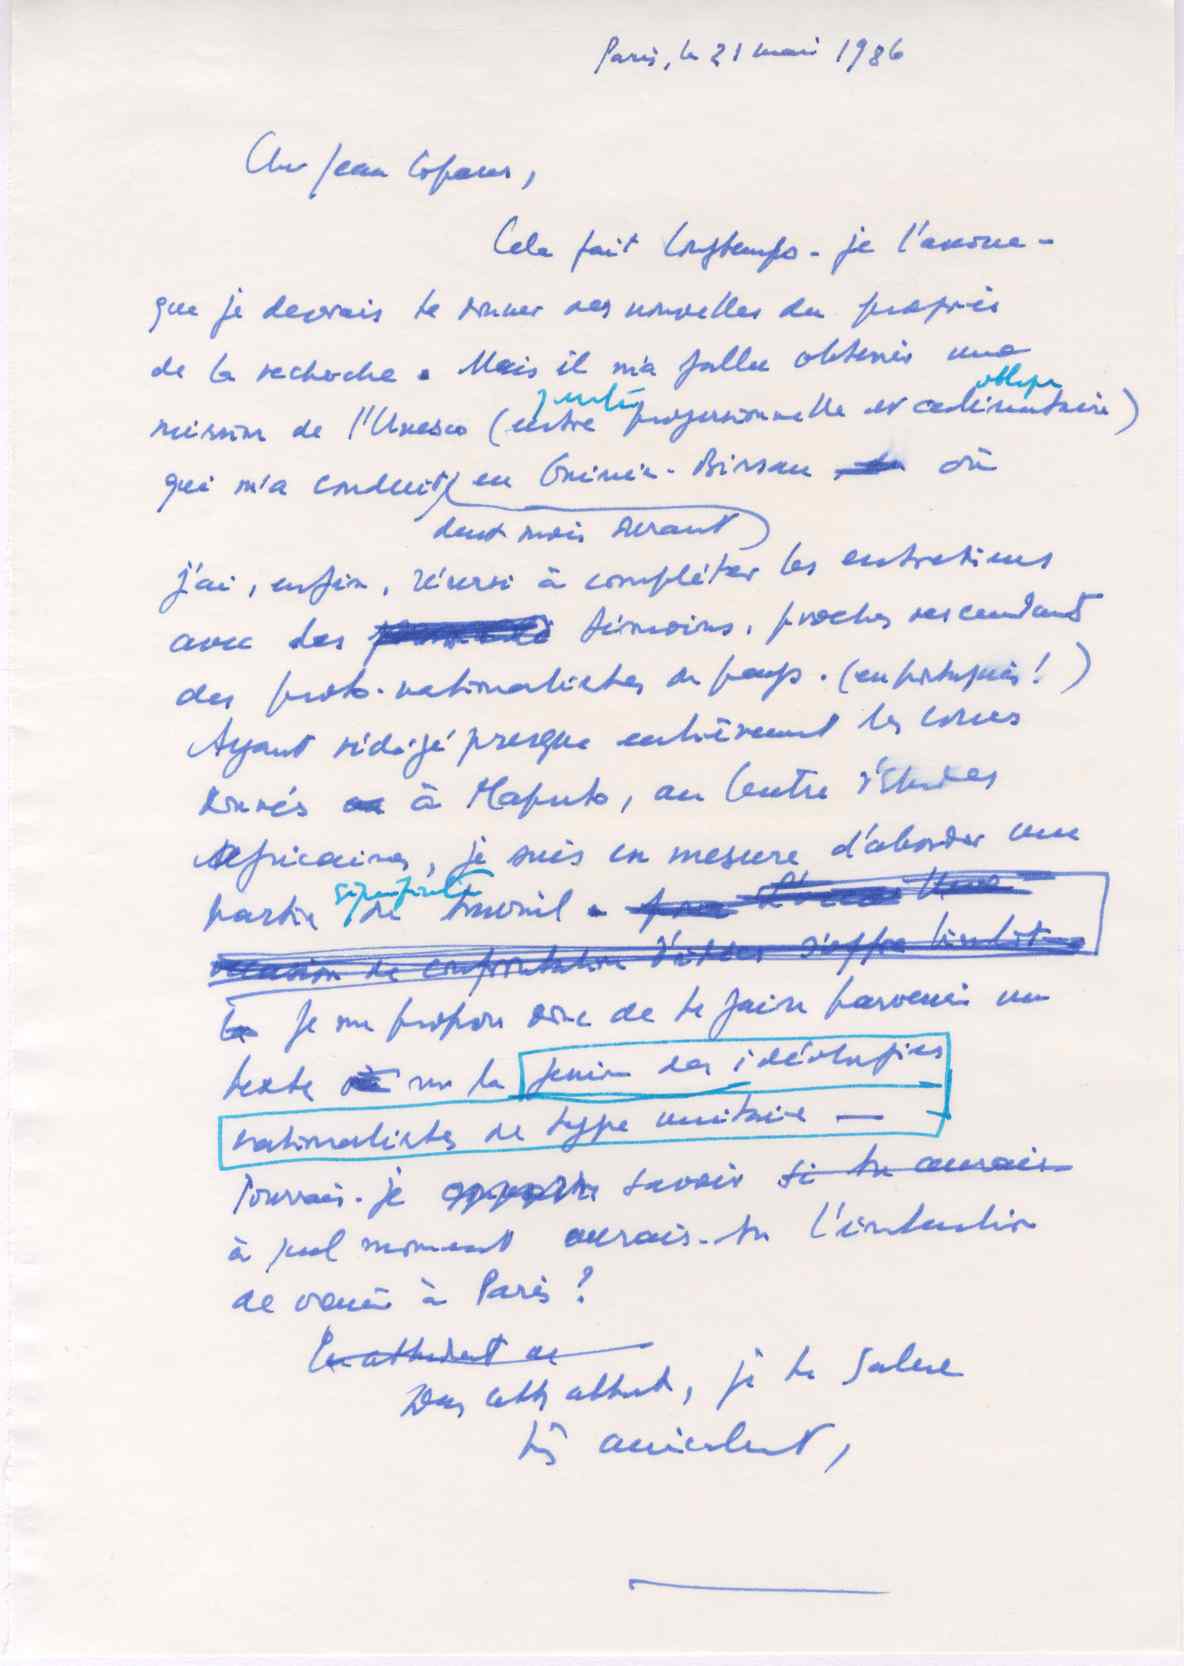 Paris, le 21 mai 1986
Cher Jean Copans,
Cela fait longtemps - je l'avoue -
que je devrais te donner des nouvelles du progrès
de la recherche. Mais il m'a fallu obtenir une
mission de l'Unesco (entre professionnelle et alimentaire)
qui m'a conduit en Guinée-Bissau où
deux mois durant
j'ai, enfin, réussi à compléter les entretiens
avec des témoins, proches descendants
des proto-nationalistes du pays. (en portugais!)
Ayant rédigé presque entièrement les cours
donnés à Maputo, au Centre d'Études
Africaines, je suis en mesure d'aborder une
significative
partie de travail.
occasion de confrontation d'idées s'offre bientôt
Je me propose donc de te faire parvenir un
texte sur la genèse des idéologies
nationalistes de type unitaire —
Pourrais-je savoir si tu aurais
à quel moment aurais-tu l'intention
de venir à Paris ?
En attendant de
Dans cette attente, je te salue
très amicalement,